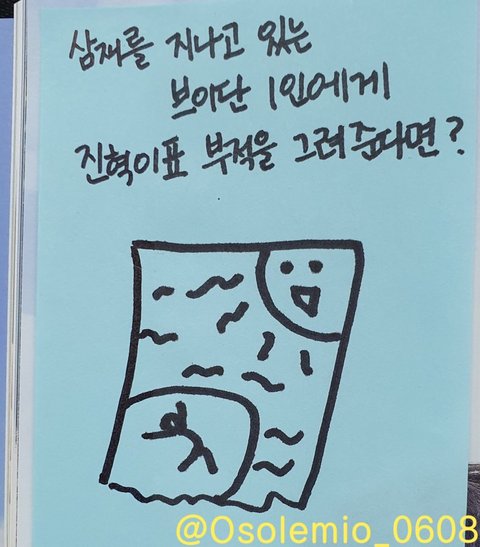 삼재를 지나고 있는
브이단 1인에게
진혁이표 부적을 그려준다면?
@Osolemio_0608